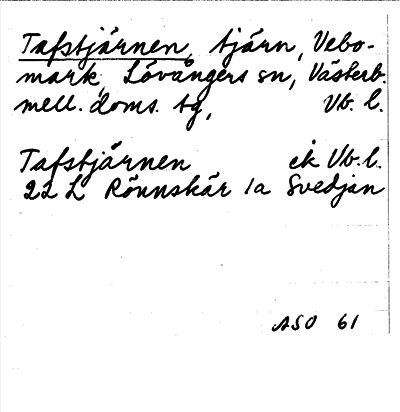 Tafstjärnen, tjärn, Vebo-
mark, Lövångers sn, Västerb.
mell. doms. tg, Vb. l.
Tafstjärnen ek Vb. l.
22 L Rönnskär 1a Svedjan
ASO 61